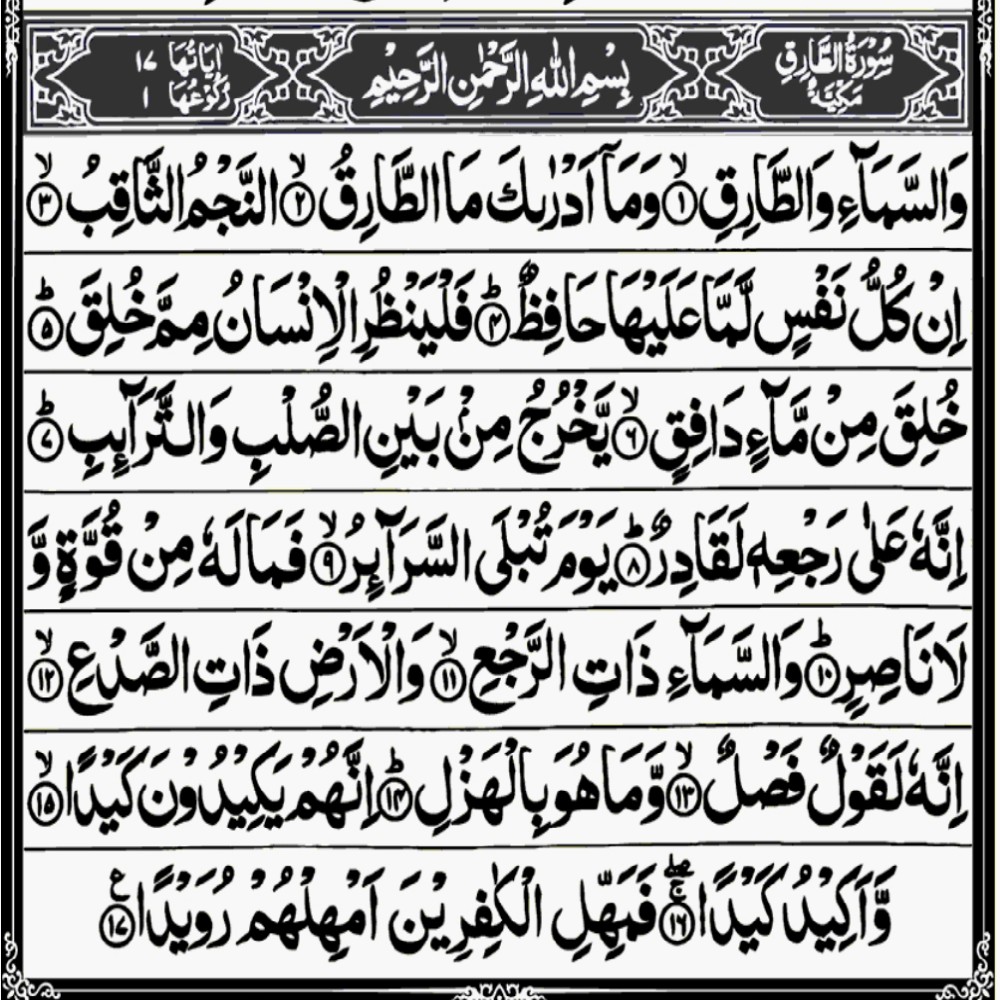 سُوْرَةُ الطَّارِقِ مَكِّيَّةٌ بِسْمِ اللهِ الرَّحْمٰنِ الرَّحِيْمِ اٰيَاتُهَا ١٧ رُكُوْعُهَا ١
وَالسَّمَآءِ وَالطَّارِقِ ۙ﴿١﴾ وَمَاۤ اَدْرٰىكَ مَا الطَّارِقُ ۙ﴿٢﴾ النَّجْمُ الثَّاقِبُ ۙ﴿٣﴾
اِنْ كُلُّ نَفْسٍ لَّمَّا عَلَيْهَا حَافِظٌ ؕ﴿۴﴾ فَلْيَنْظُرِ الْاِنْسَانُ مِمَّ خُلِقَ ؕ﴿۵﴾
خُلِقَ مِنْ مَّآءٍ دَافِقٍ ۙ﴿۶﴾ يَّخْرُجُ مِنْۢ بَيْنِ الصُّلْبِ وَالتَّرَآئِبِ ؕ﴿۷﴾
اِنَّهٗ عَلٰى رَجْعِهٖ لَقَادِرٌ ؕ﴿۸﴾ يَوْمَ تُبْلَى السَّرَآئِرُ ۙ﴿۹﴾ فَمَا لَهٗ مِنْ قُوَّةٍ وَّ
لَا نَاصِرٍ ؕ﴿۱۰﴾ وَالسَّمَآءِ ذَاتِ الرَّجْعِ ۙ﴿۱۱﴾ وَالْاَرْضِ ذَاتِ الصَّدْعِ ۙ﴿۱۲﴾
اِنَّهٗ لَقَوْلٌ فَصْلٌ ۙ﴿۱۳﴾ وَّمَا هُوَ بِالْهَزْلِ ؕ﴿۱۴﴾ اِنَّهُمْ يَكِيْدُوْنَ كَيْدًا ۙ﴿۱۵﴾
وَّاَكِيْدُ كَيْدًا ۚۖ﴿۱۶﴾ فَمَهِّلِ الْكٰفِرِيْنَ اَمْهِلْهُمْ رُوَيْدًا ﴿۱۷﴾ ع